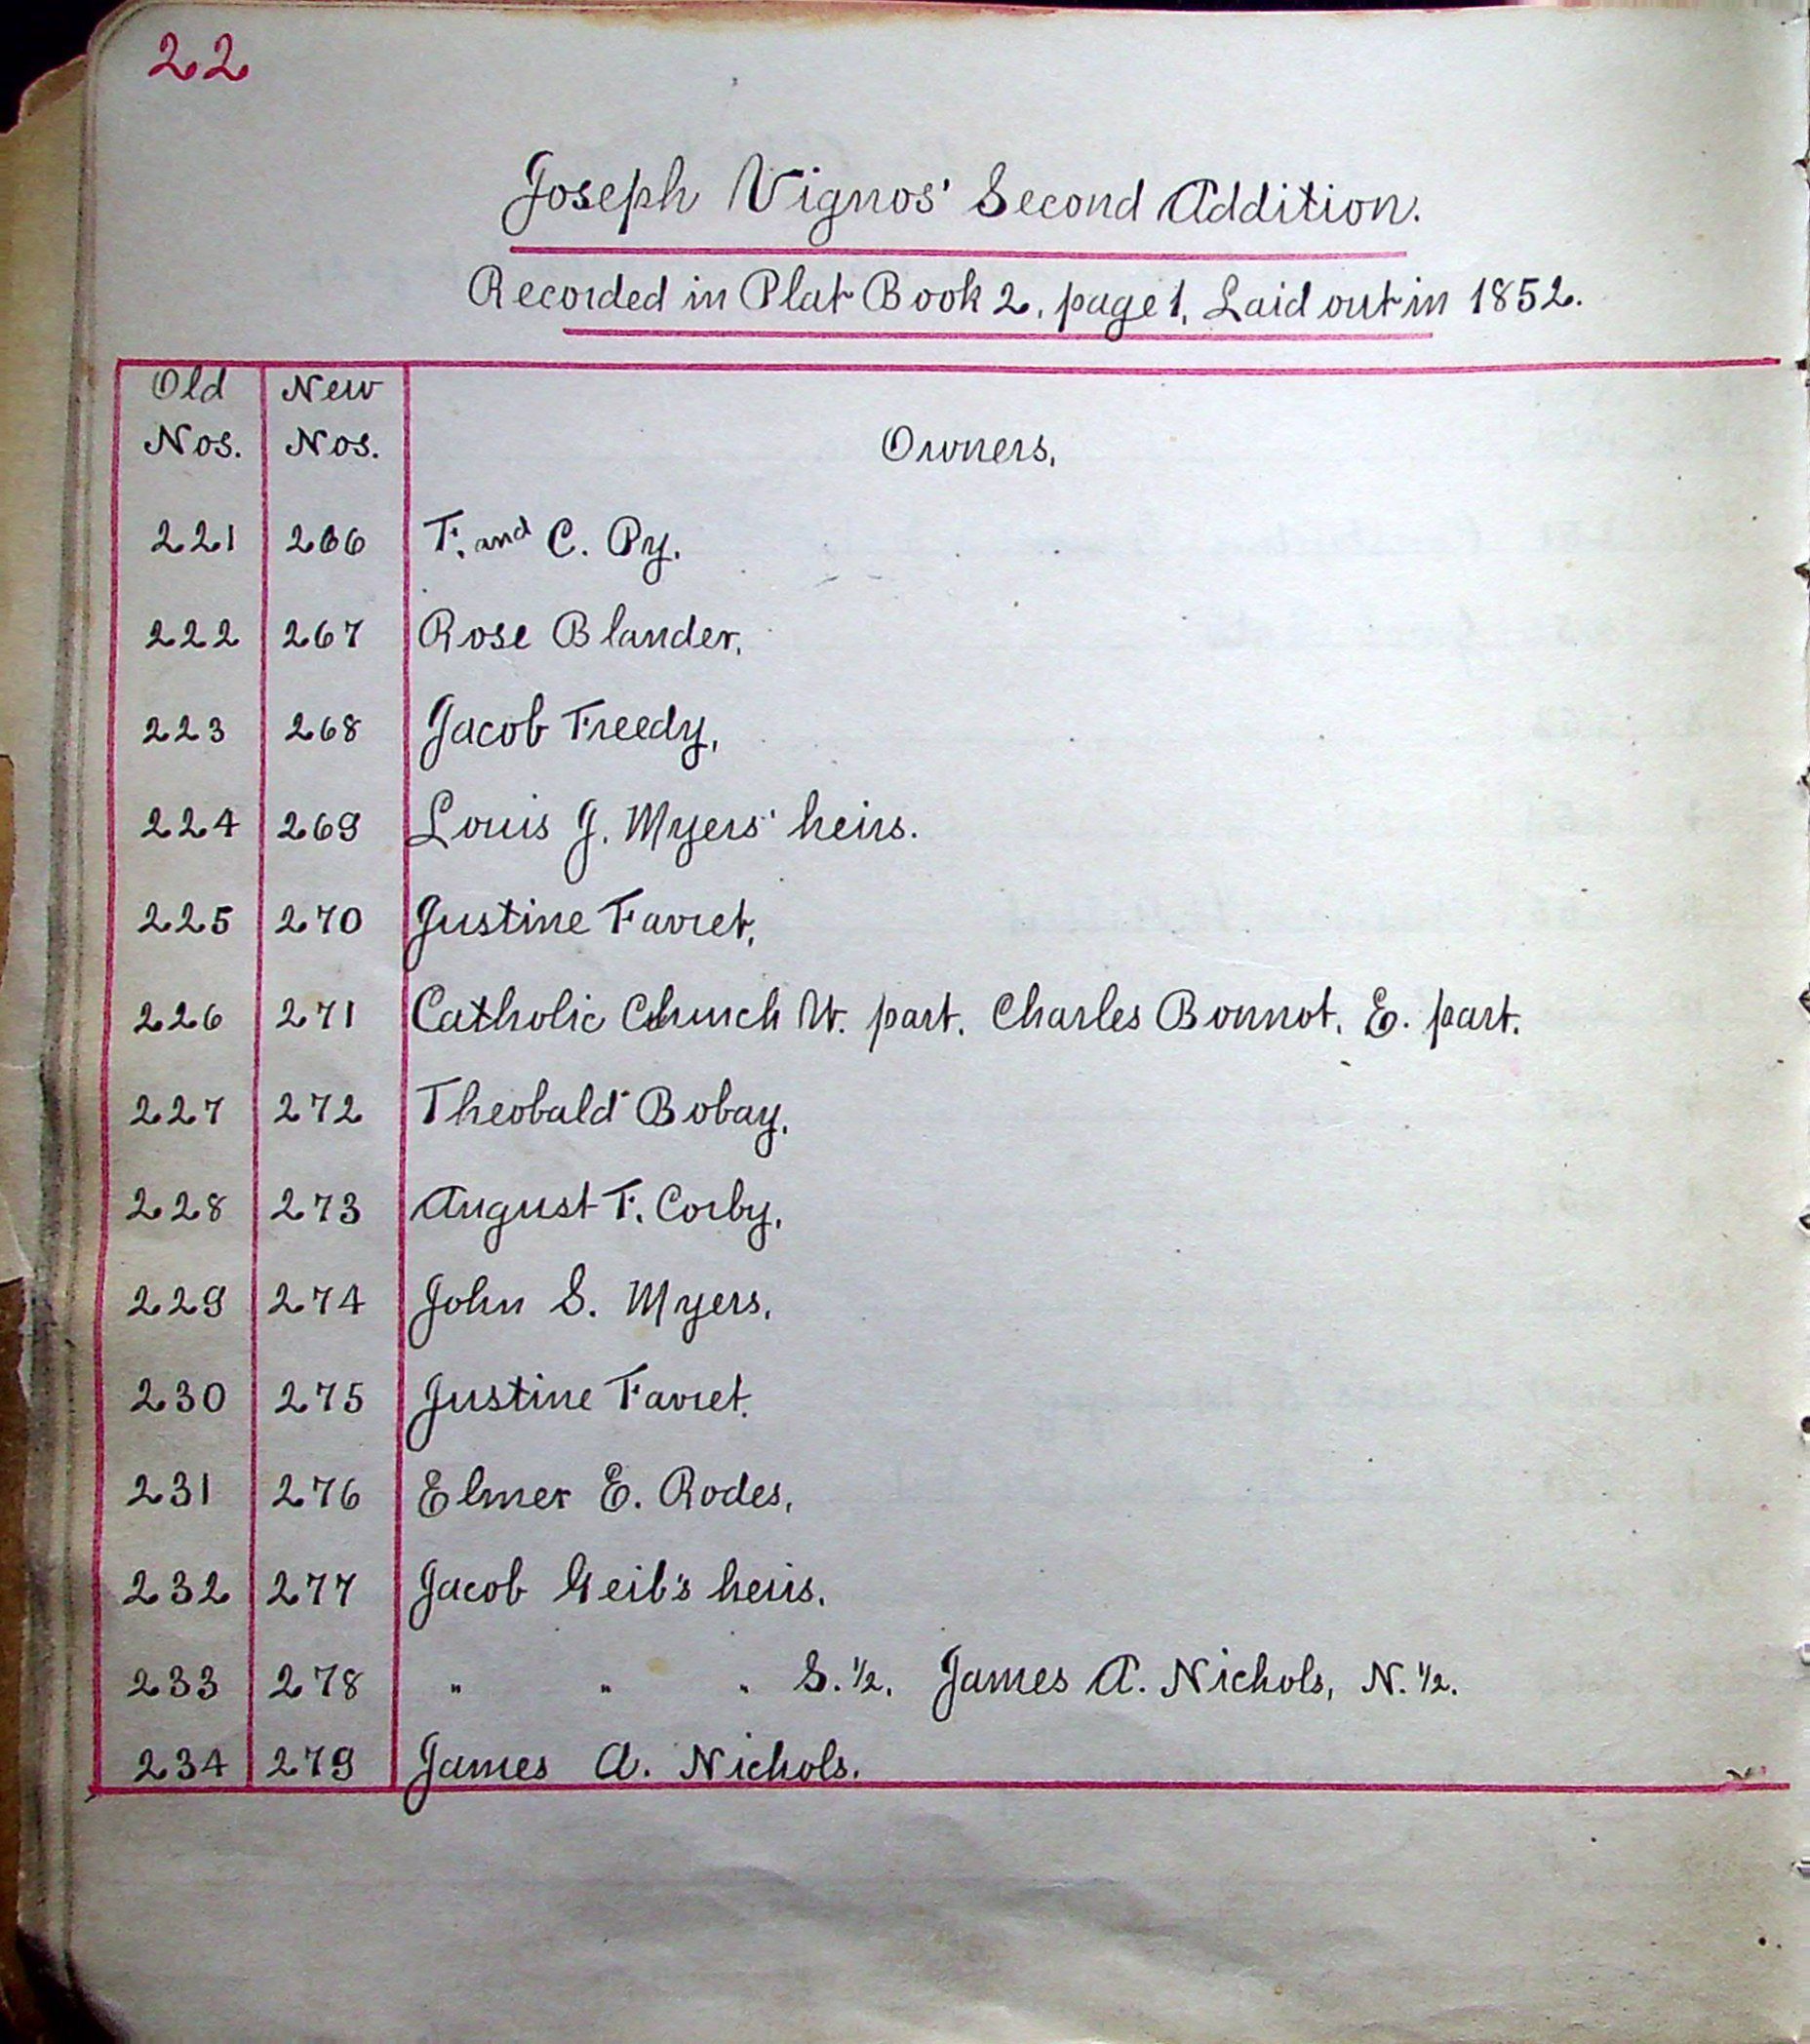 22
Joseph Vignos' Second Addition.
Recorded in Plat Book 2, page 1, Laid out in 1852.
Old New
Nos. Nos. Owners,
221 266 F. and C. Py.
222 267 Rose Blander,
223 268 Jacob Freedy,
224 269 Louis J. Myers' heirs.
225 270 Justine Favret,
226 271 Catholic Church W. part. Charles Bonnot, E. part.
227 272 Theobald Bobay,
228 273 August F. Corby,
229 274 John S. Myers,
230 275 Justine Favret.
231 276 Elmer E. Rodes,
232 277 Jacob Geib's heirs.
233 278 " " " S. 1/2, James A. Nichols, N. 1/2.
234 279 James A. Nichols.